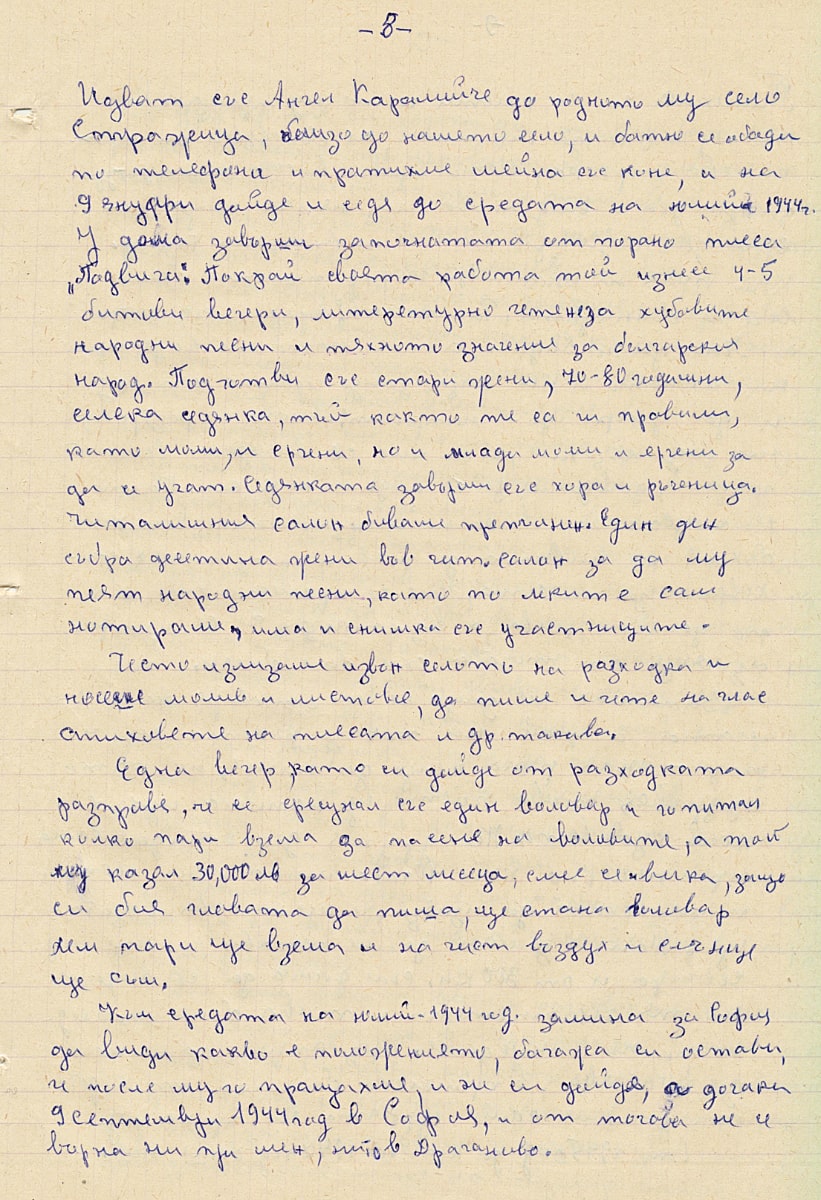 -8-
Идват със Ангел Каралийче до родното му село
Стражица, близо до нашето село, и батю се обади
по телефона и пратихме шейна със коне, и на
9 януари дойде и седя до средата на юлий 1944г.
У дома завърши започнатата от порано пиеса
„Подвига“. Покрай своята работа той изнесе 4-5
битови вечери, литературно четене за хубавите
народни песни и тяхното значение за българския
народ. Подготви със стари жени, 70-80 годишни,
селска седянка, тъй както те са ги правили,
като моми, и ергени, но и млади моми и ергени за
да се учат. Седянката завърши със хора и ръченица.
Читалишния салон биваше препълнен. Един ден
събра десетина жени във чит. салон за да му
пеят народни песни, като по мкит е сам
нотираше, има и снимка със участниците.
Често излизаше извън селото на разходка и
носеше молив и листове, да пише и чете на глас
стиховете на пиесата и др. такава.
Една вечер като си дойде от разходката
разправя, че се срещнал със един воловар и го питал
колко пари взема да пасене на воловите, а той
му казал 30,000 лв за шест месеца, смее се и вика, защо
си бия главата да пиша, ще стана воловар
хем пари ще взема и на чист въздух и слънце
ще съм.
Към средата на юлий-1944 год. замина за София
да види какво е положението, багажа си остави,
че после му го пращахме, и не си дойде, а дочака
9 септември 1944 год в София, и от тогова не се
върна ни при мен, нито в Драганово.